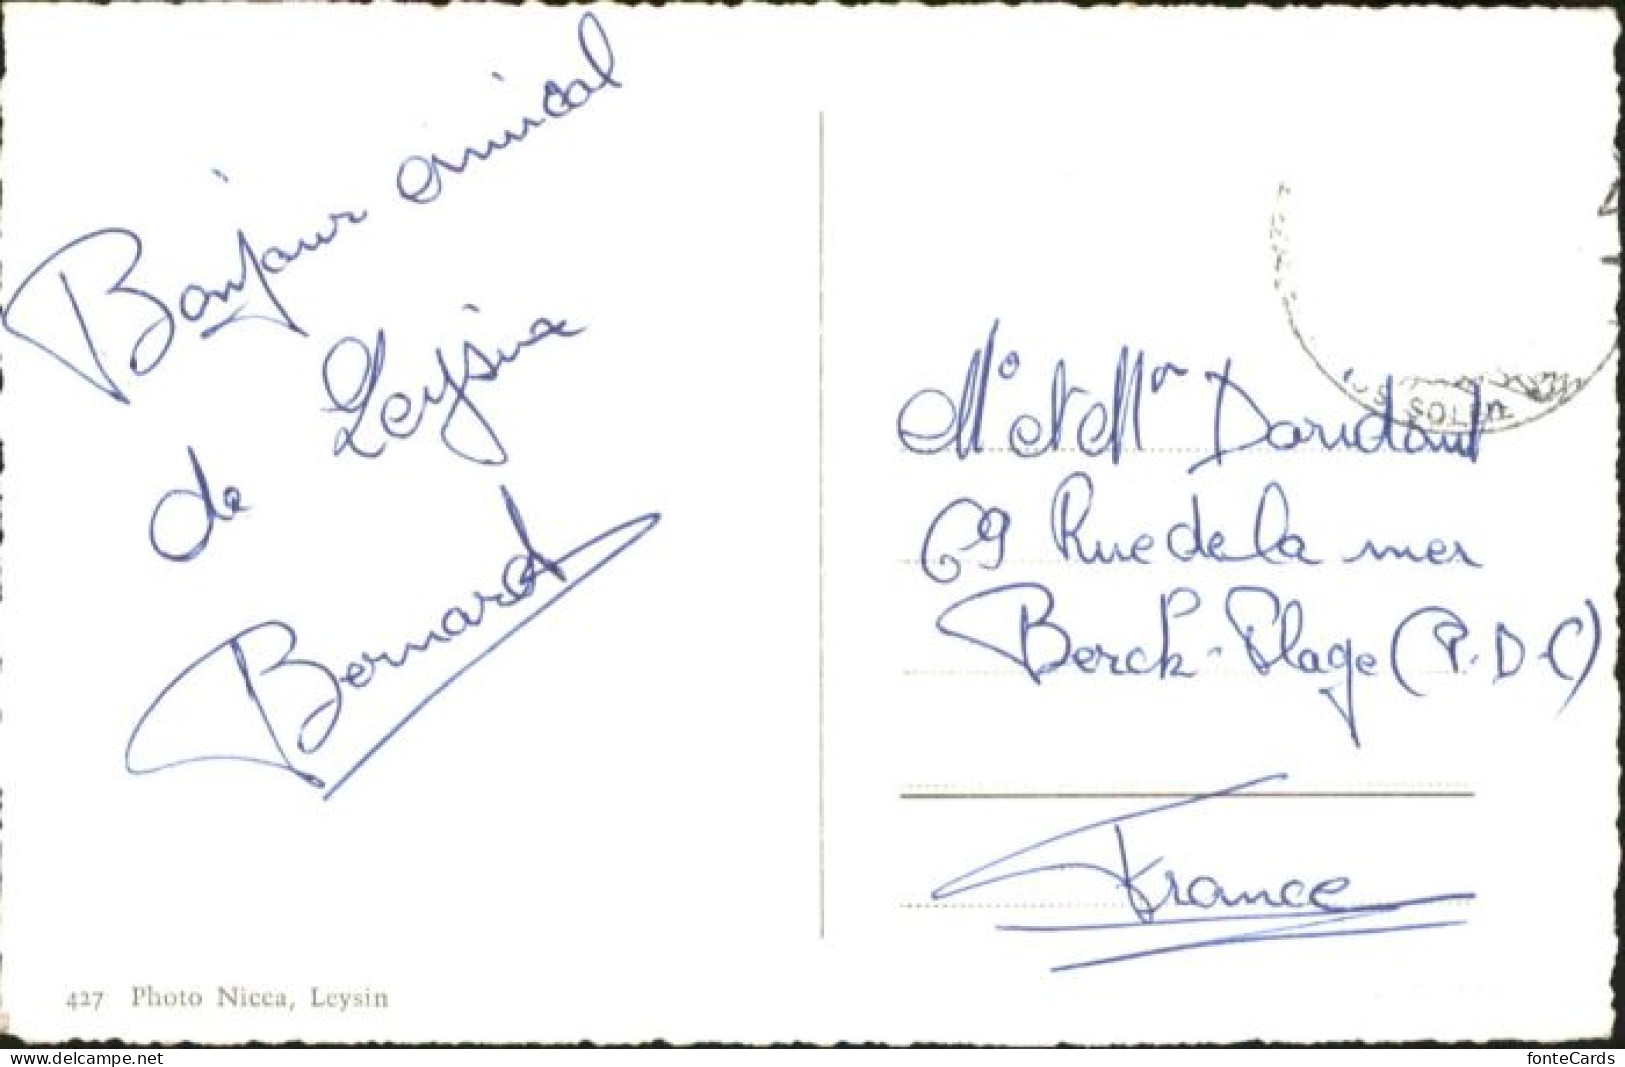 Bonjour amical
de Leysin
Bernard
427 Photo Nicca, Leysin
SOLEIL
Mr et Mme
69 Rue de la mer
Berck-Plage (P.D.C)
France
www.delcampe.net
fonteCards